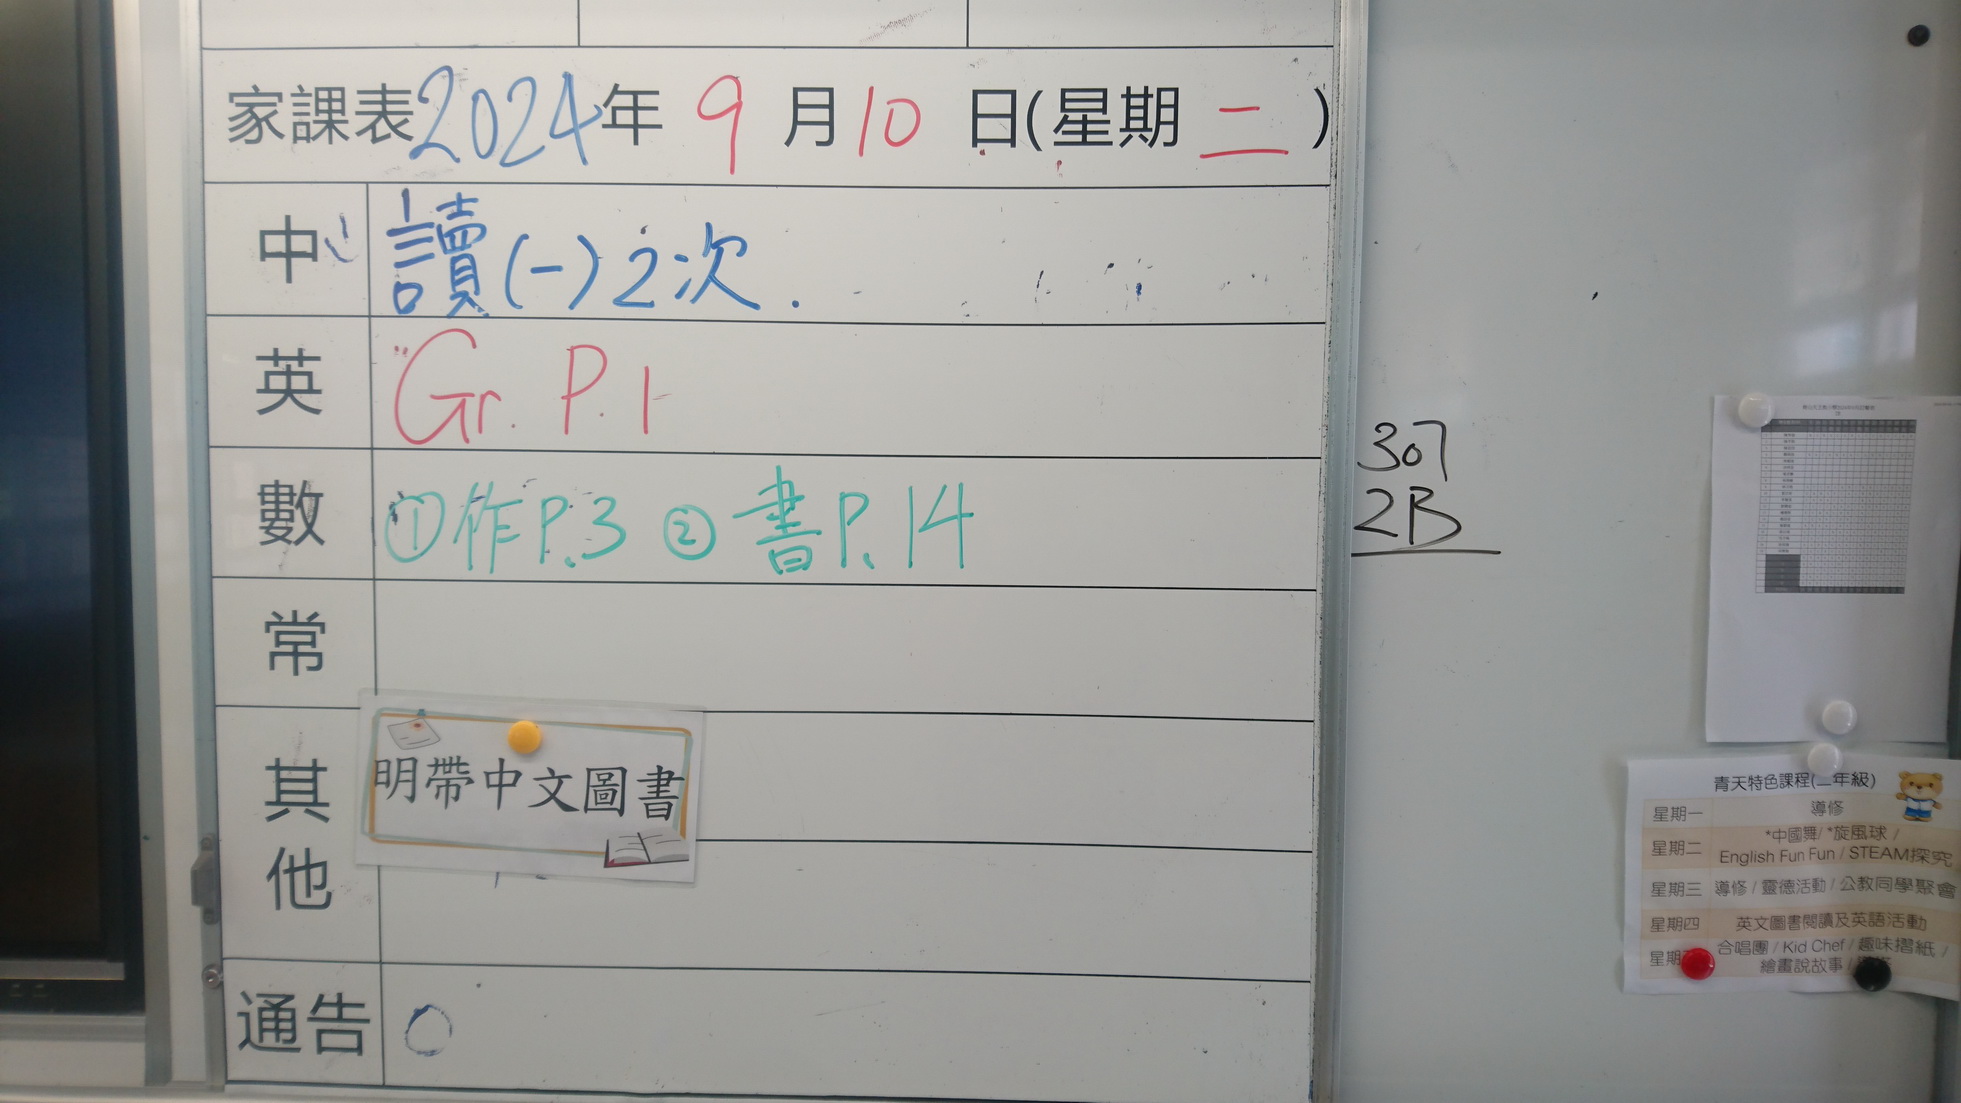 家課表2024年 9 月10 日(星期 二 )
中 讀(一)2次.
英 Gr. P.1
數 ①作P.3 ②書P.14
常
其他
明帶中文圖書
通告 0
307
2B
青天特色課程(二年級)
星期一 導修
星期二 *中國舞/ *旋風球 /
English Fun Fun / STEAM探究
星期三 導修 / 靈德活動 / 公教同學聚會
星期四 英文圖書閱讀及英語活動
星期 合唱團 / Kid Chef / 趣味摺紙 /
繪畫說故事 /